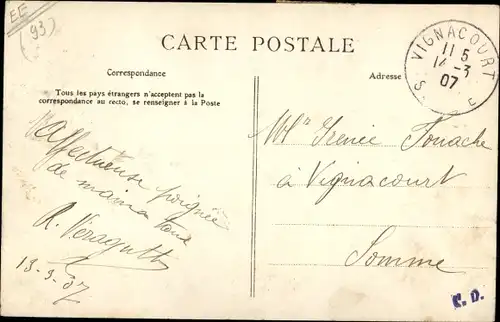 EC
(93)
CARTE POSTALE
Correspondance
Tous les pays étrangers n'acceptent pas la
correspondance au recto, se renseigner à la Poste
Affectueuse poignée
de mains
R. Veragutt
13-3-07
Adresse
VIGNACOURT
11 5
14-3
07
S E
Irénée Touache
à Vignacourt
Somme
C.D.